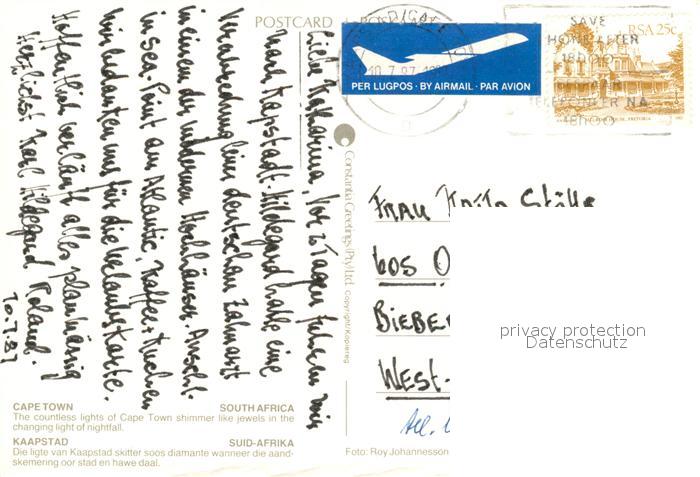 POSTCARD
SAVE
18D00
RSA 25c
18D00
PER LUGPOS · BY AIRMAIL · PAR AVION
Liebe Katharina, Vor 2 Tagen fuhren wir
nach Kapstadt. Hildegard hatte eine
Verabredung beim deutschen Zahnarzt
in einem der modernen Hochhäuser. Anschl.
in Sea-Point am Atlantic, Kaffee + Kuchen
wir bedanken uns für die Urlaubskarte.
Hoffentlich verläuft alles planmässig
Herzlichst Karl Hildegard Roland.
Constantia Greetings (Pty) Ltd. Copyright/Kopiereg
FRAU
BIEBE
WEST-
privacy protection
Datenschutz
CAPE TOWN SOUTH AFRICA
The countless lights of Cape Town shimmer like jewels in the
changing light of nightfall.
KAAPSTAD SUID-AFRIKA
Die ligte van Kaapstad skitter soos diamante wanneer die aand-
skemering oor stad en hawe daal.
Foto: Roy Johannesson